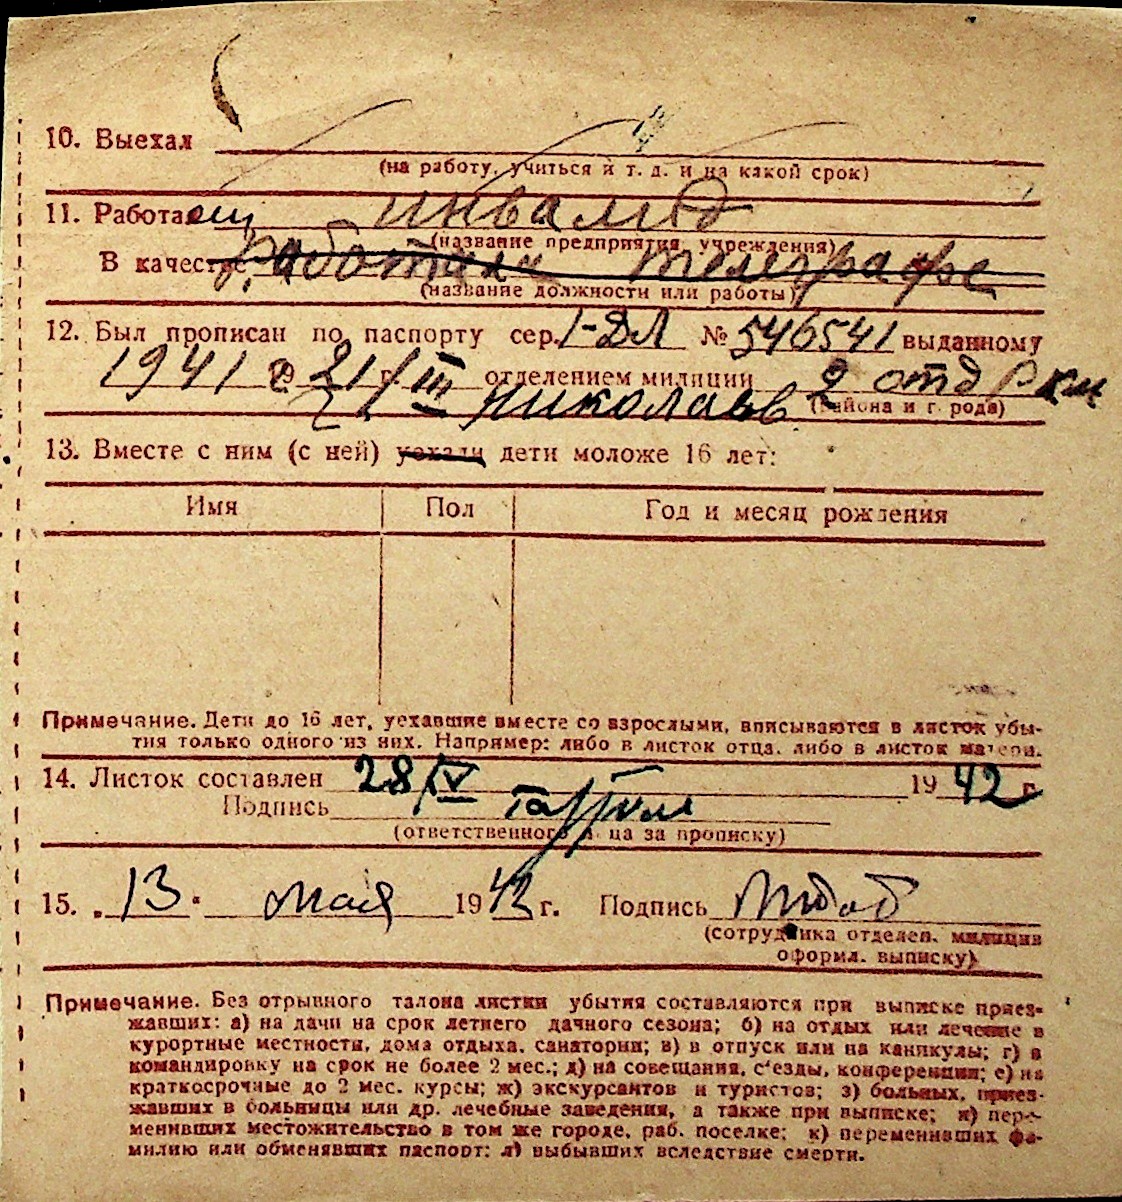 10. Выехал
(на работу, учиться и т. д. и на какой срок)
11. Работа инвалид
(название предприятия, учреждения)
В качестве работали телеграфе
(название должности или работы)
12. Был прописан по паспорту сер. I-ДЛ № 546541 выданному
1941 г 21/III отделением милиции 2 отд Р км
Николаев (района и г. рода)
13. Вместе с ним (с ней) уехали дети моложе 16 лет:
Имя Пол Год и месяц рождения
Примечание. Дети до 16 лет, уехавшие вместе со взрослыми, вписываются в листок убы-
тия только одного из них. Например: либо в листок отца, либо в листок матери.
14. Листок составлен 28/IV 1942 г.
Подпись
(ответственного лица за прописку)
15. „13" мая 1942 г. Подпись
(сотрудника отделен. милиции
оформл. выписку)
Примечание. Без отрывного талона листки убытия составляются при выписке приез-
жавших: а) на дачи на срок летнего дачного сезона; б) на отдых или лечение в
курортные местности, дома отдыха, санатории; в) в отпуск или на каникулы; г) в
командировку на срок не более 2 мес.; д) на совещания, с'езды, конференции; е) на
краткосрочные до 2 мес. курсы; ж) экскурсантов и туристов; з) больных, приез-
жавших в больницы или др. лечебные заведения, а также при выписке; и) пере-
менивших местожительство в том же городе, раб. поселке; к) переменивших фа-
милию или обменявших паспорт; л) выбывших вследствие смерти.